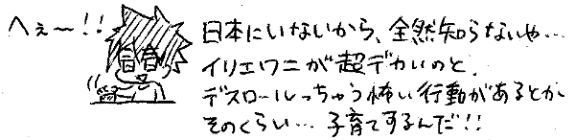 へぇ〜!!
日本にいないから、全然知らないや…
イリエワニが超デカいのと、
デスロールっちゅう怖い行動があるとか
そのくらい… 子育てするんだ!!